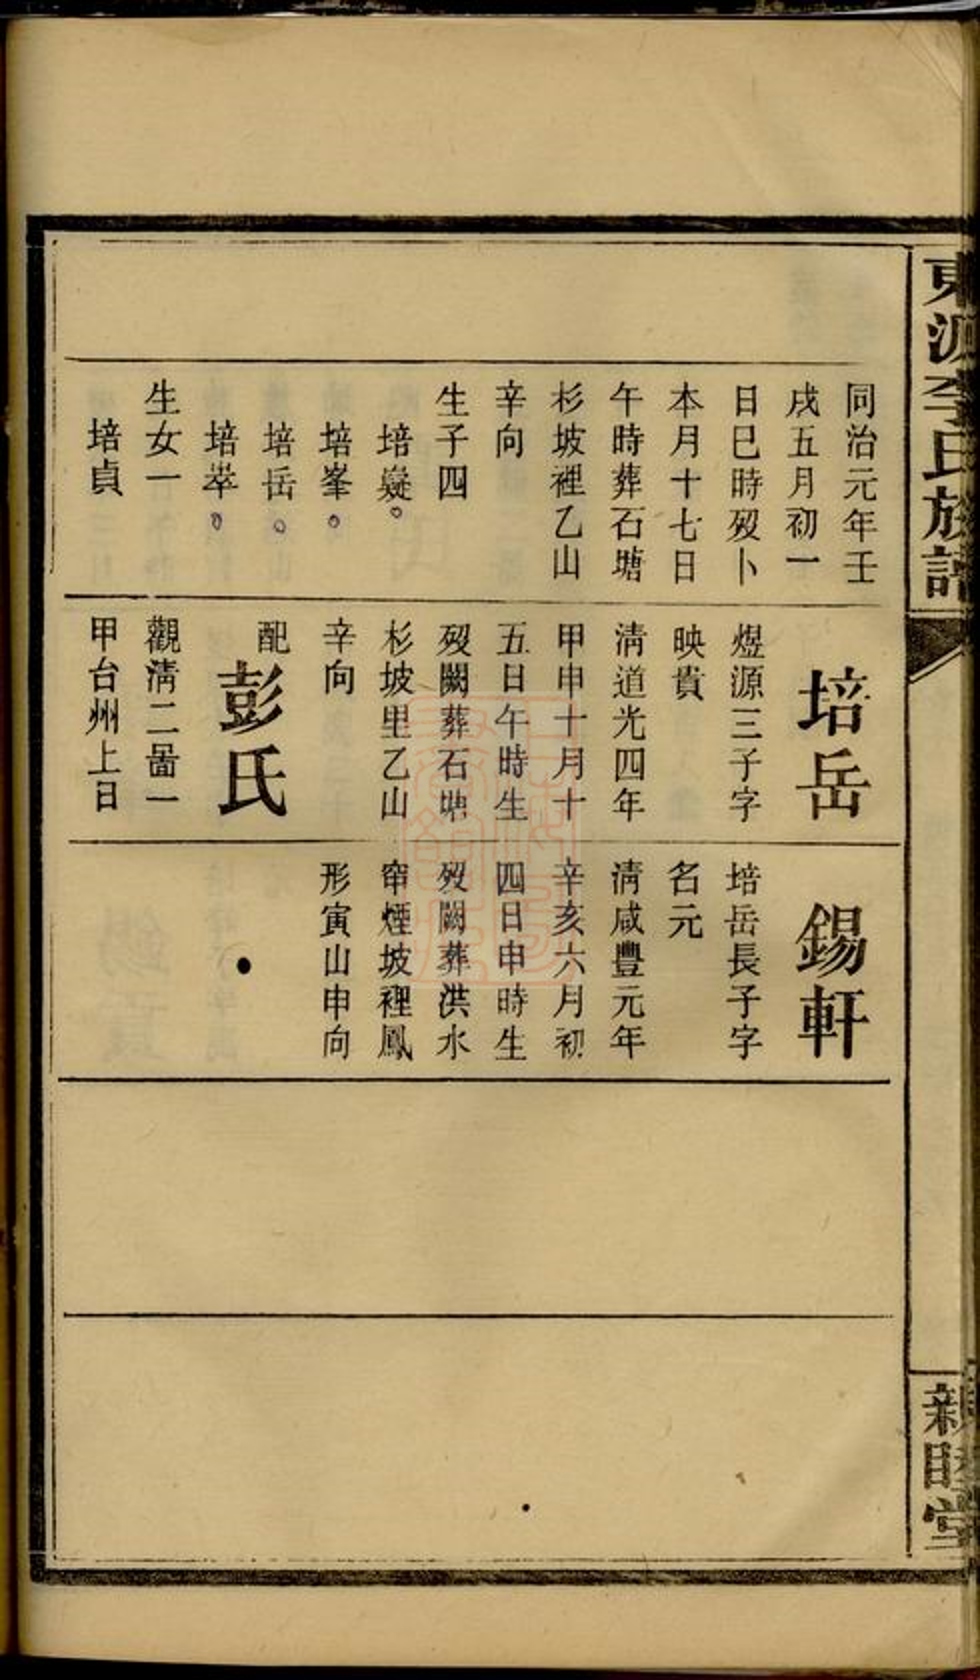 東源李氏族譜
新睦堂
同治元年壬
戌五月初一
日巳時歿卜
本月十七日
午時葬石塘
杉坡裡乙山
辛向
生子四
培嶷
培峯
培岳
培萃
生女一
培貞
培岳
煜源三子字
映貴
清道光四年
甲申十月十
五日午時生
歿闕葬石塘
杉坡里乙山
辛向
配
彭氏
觀清二啚一
甲台州上日
錫軒
培岳長子字
名元
清咸豐元年
辛亥六月初
四日申時生
歿闕葬洪水
窂煙坡裡鳳
形寅山申向